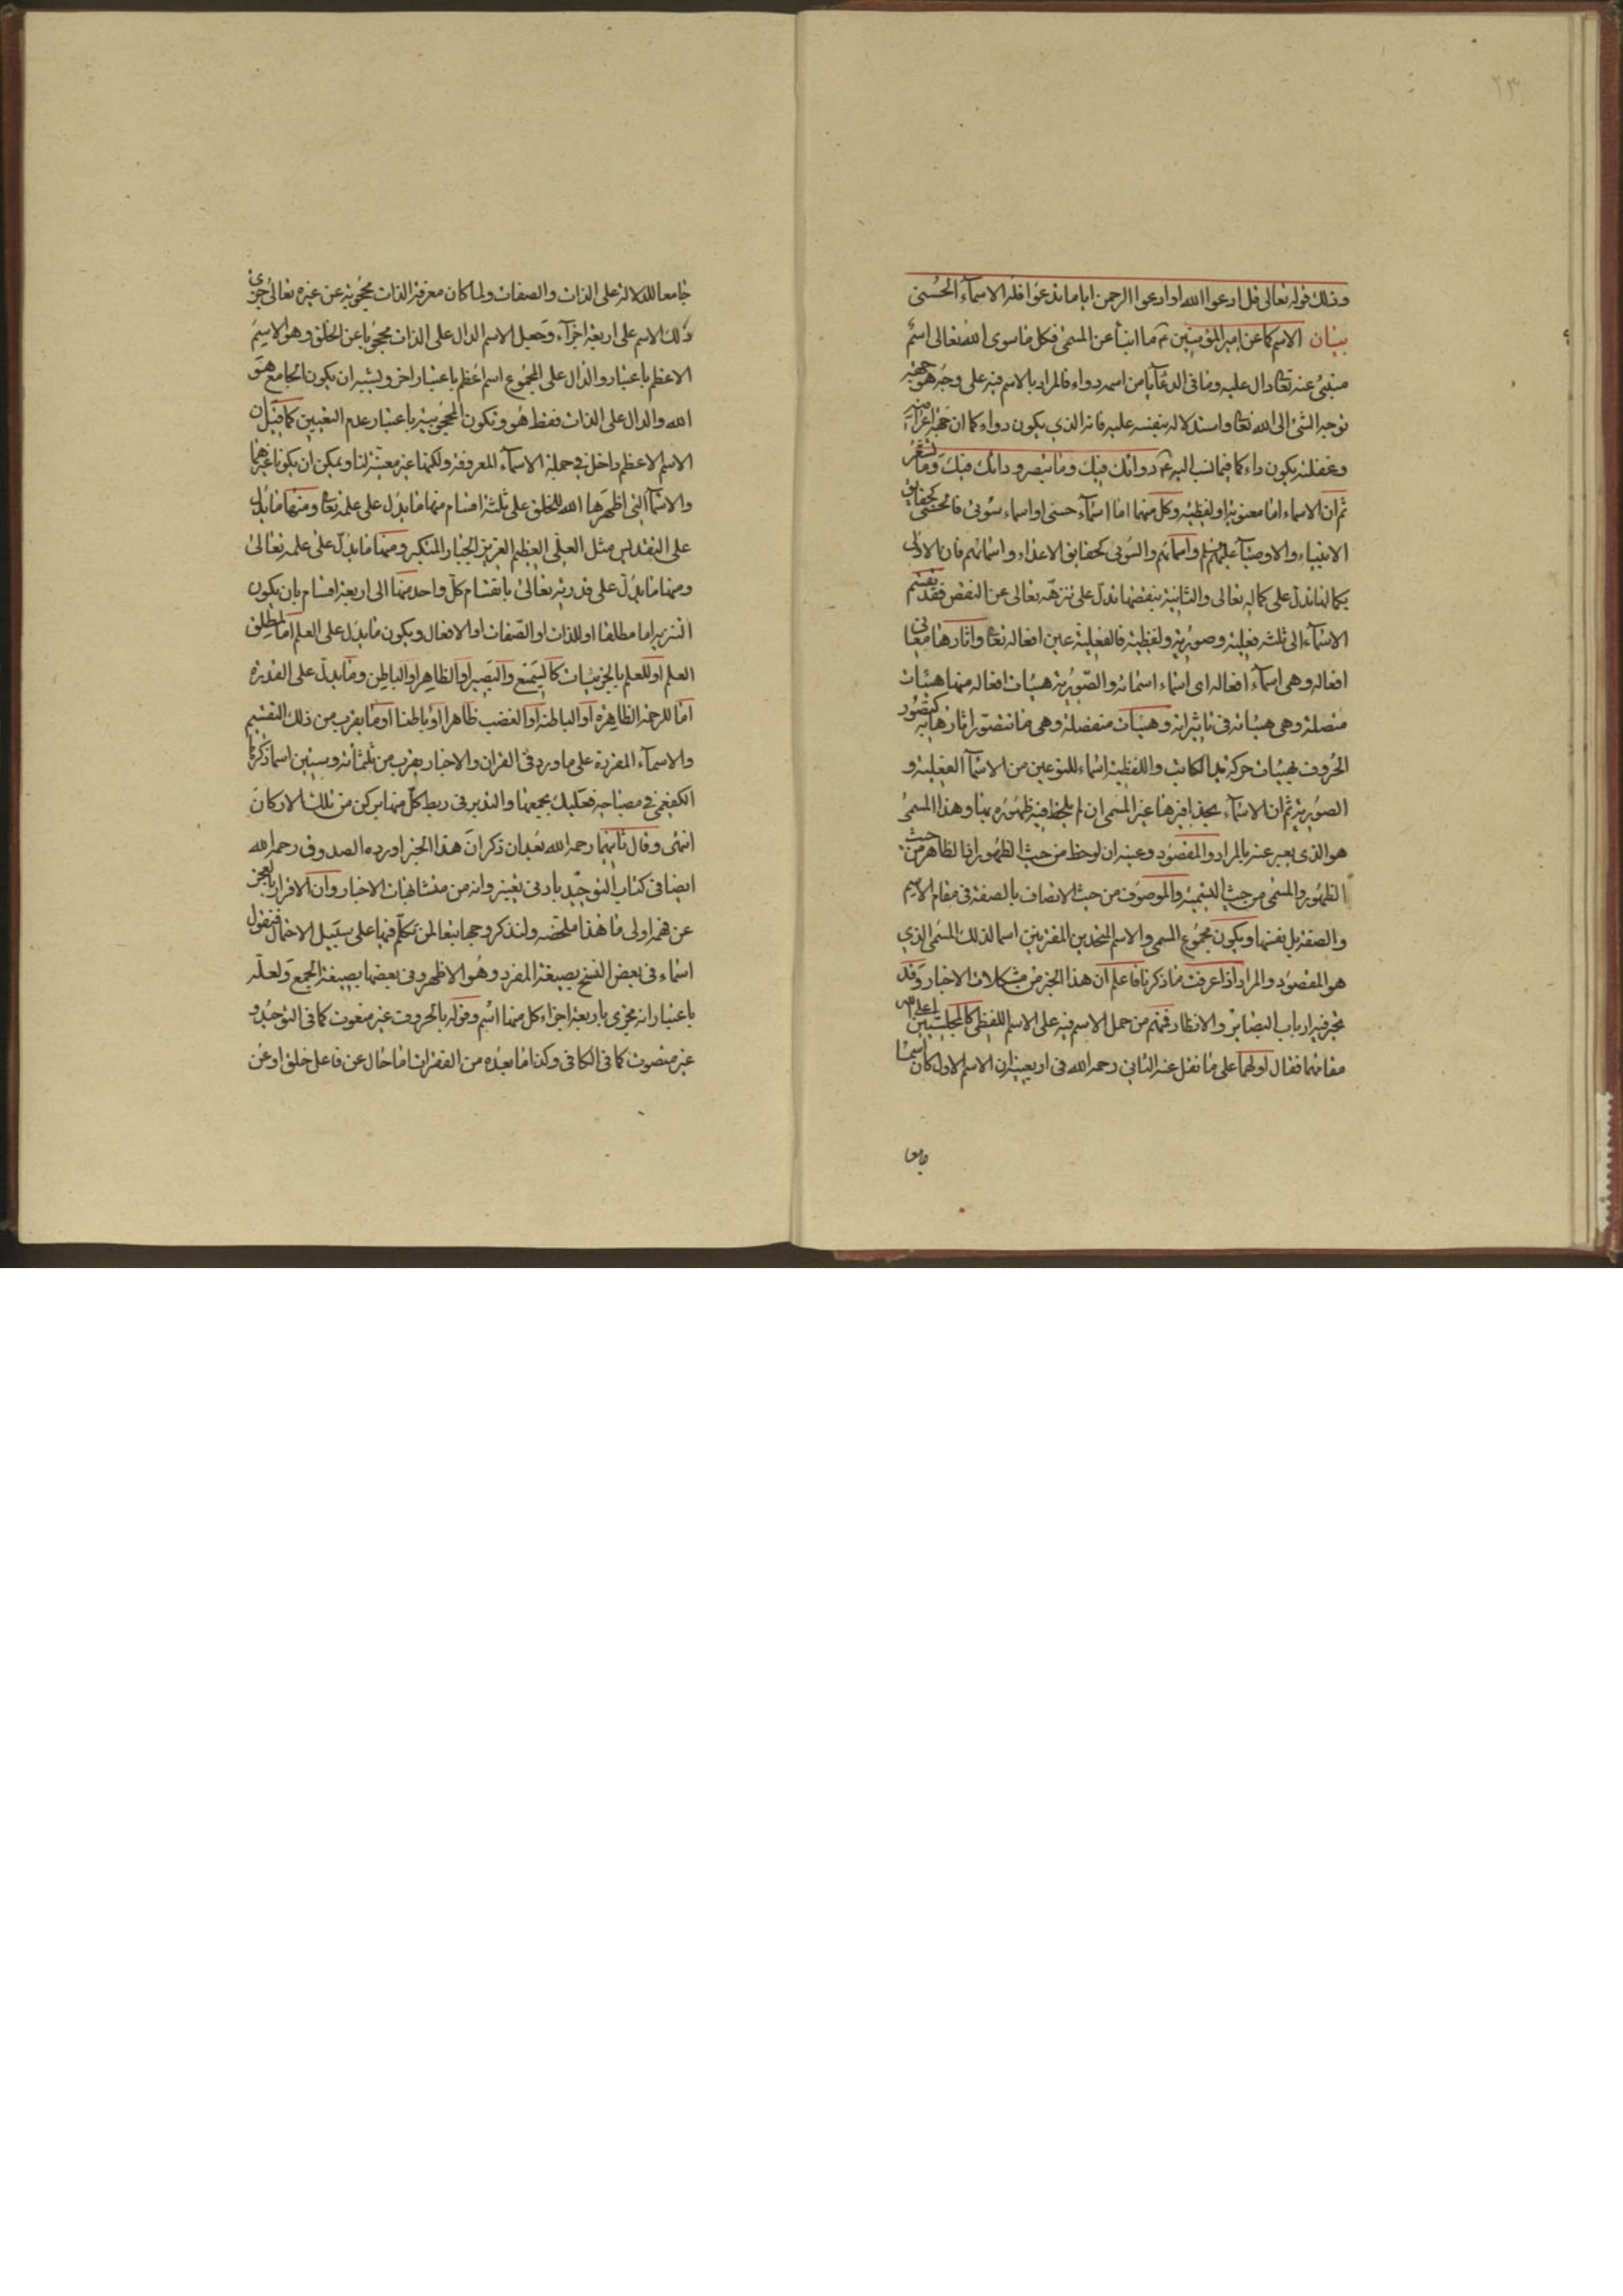 ٢٣
وذلك قوله تعالى قل ادعوا الله او ادعوا الرحمن اياما تدعوا فله الاسمآء الحسنى
بيان الاسم كما عن امير المؤمنين ع ما انبأ عن المسمى فكل ما سوى الله تعالى اسم
منبئ عنه تعا دال عليه وما فى الدعآ يا من اسمه دواء فالمراد بالاسم فيه على وجه هو جهة
توجه الشئ الى الله تعا واستدلاله بنفسه عليه فانه الذي يكون دواء كما ان جهة اعراضه
وغفلته يكون داء كما فيما نسب اليه ع دوائك فيك وما تبصر و دائك منك وما تشعر
ثم ان الاسماء اما معنوية او لفظية وكل منهما اما اسمآء حسنى او اسماء سوئى فالحسنى كحقايق
الانبياء والاوصيآء عليهم السلم واسمائهم والسوئى كحقايق الاعداء واسمائهم فان الاولى
بكمالها تدل على كماله تعالى والثانية بنقصها تدل على تنزهه تعالى عن النقص فقد تقسم
الاسمآء الى ثلثه فعلية وصورية ولفظية فالفعلية عين افعاله تعا واثارها معانى
افعاله وهى اسمآء افعاله اى اسماء اسمائه والصورية هيئات افعاله منها هيئات
متصلة وهى هيئاته فى تاثيراته وهيئات منفصلة وهى ما تتصور اثارها به كتصور
الحروف بهيئات حركة يد الكاتب واللفظية اسماء للنوعين من الاسمآ الفعلية و
الصورية ثم ان الاسمآء بحذافيرها غير المسمى ان لم يلحظ فيه ظهوره بها وهذا المسمى
هو الذى يعبر عنه بالمراد والمقصود وعينه ان لوحظ من حيث الظهور اذ الظاهر من حيث
الظهور والمسمى من حيث التسمية والموصوف من حيث الاتصاف بالصفة فى مقام الاسم
والصفة بل نفسها ويكون مجموع المسمى والاسم المتحدين المقترنين اسما لذلك المسمى الذي
هو المقصود والمراد اذا عرفت ما ذكرنا فاعلم ان هذا الخبر من مشكلات الاخبار وقد
تحير فيه ارباب البصاير والانظار فمنهم من حمل الاسم فيه على الاسم اللفظى كالمجلسيين اعلى الله
مقامهما فقال اولهما على ما نقل عنه الثانى رحمه الله فى اربعينه ان الاسم الاول كان اسما
جامعا
جامعا للدلالة على الذات والصفات ولما كان معرفة الذات محجوبة عن غيره تعالى جزى
ذلك الاسم على اربعة اجزآء وجعل الاسم الدال على الذات محجوبا عن الخلق وهو الاسم
الاعظم باعتبار والدال على المجموع اسم اعظم باعتبار اخر ويشبه ان يكون الجامع هو
الله والدال على الذات فقط هو وتكون المحجوبية باعتبار عدم التعيين كما قيل ان
الاسم الاعظم داخل فى جملة الاسمآء المعروفة ولكنها غير معينة لنا ويمكن ان يكونا غيرهما
والاسمآ التى اظهرها الله للخلق على ثلثة اقسام منها ما يدل على علمه تعا ومنها ما يدل
على التقديس مثل العلى العظيم العزيز الجبار المتكبر ومنها ما يدل على علمه تعالى
ومنها ما يدل على قدرته تعالى بانقسام كل واحد منها الى اربعة اقسام بان يكون
التنزيه اما مطلقا او للذات او الصفات او الافعال ويكون ما يدل على العلم اما لمطلق
العلم او للعلم بالجزئيات كالسميع والبصير او الظاهر او الباطن وما يدل على القدرة
اما للرحمة الظاهرة او الباطنة او الغضب ظاهرا او باطنا او ما يقرب من ذلك التقسيم
والاسمآء المفردة على ما ورد فى القران والاخبار يقرب من ثلثمائة وستين اسما ذكرها
الكفعمى فى مصباحه فعليك بجمعها والتدبر فى ربط كل منها بركن من تلك الاركان
انتهى وقال ثانيهما رحمه الله بعد ان ذكر ان هذا الخبر اورده الصدوق رحمه الله
ايضا فى كتاب التوحيد بادنى تغيير وانه من متشابهات الاخبار وان الاقرار بالعجز
عن فهمه اولى ما هذا ملخصه ولنذكر وجها تبعا لمن تكلم فيها على سبيل الاحتمال فنقول
اسماء فى بعض النسخ بصيغة المفرد وهو الاظهر وفى بعضها بصيغة الجمع ولعله
باعتبار انه مجزى باربعة اجزاء كل منها اسم وقوله بالحروف غير منعوت كما فى التوحيد و
غير متصوت كما فى الكافى وكذا ما بعده من الفقرات اما حال عن فاعل خلق او عن